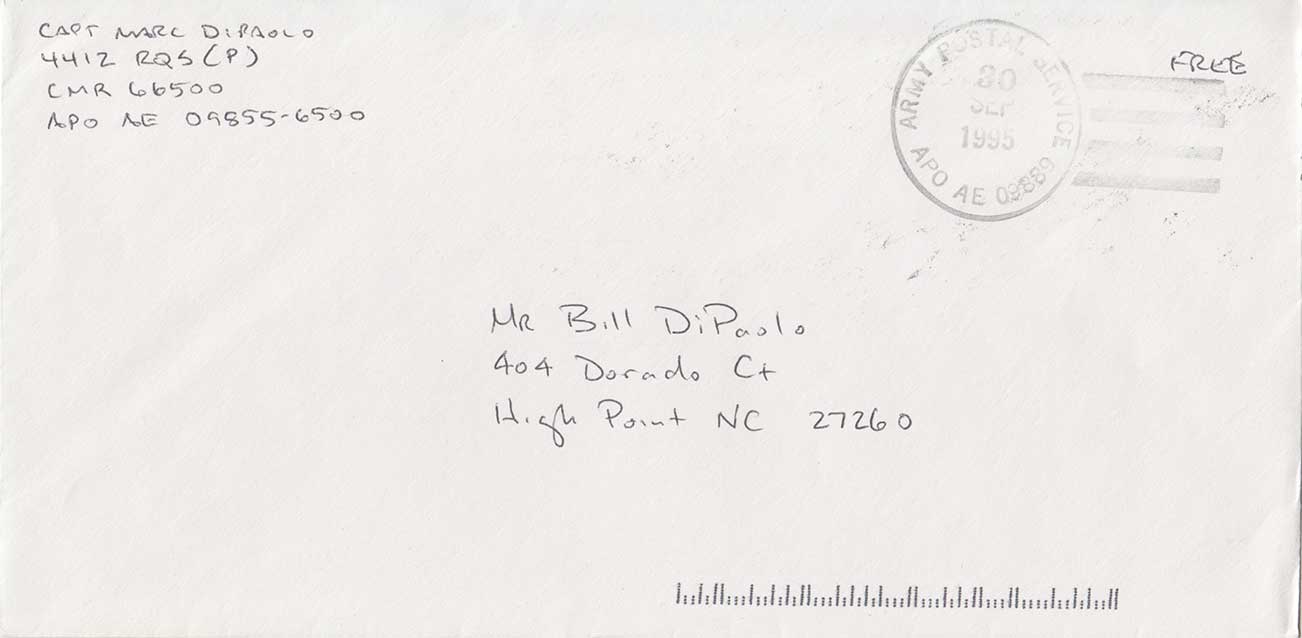 CAPT MARC DiPAOLO
4412 RQS (P)
CMR 66500
APO AE 09855-6500
FREE
ARMY POSTAL SERVICE
SEP
1995
APO AE
Mr Bill DiPaolo
404 Dorado Ct
High Point NC 27260